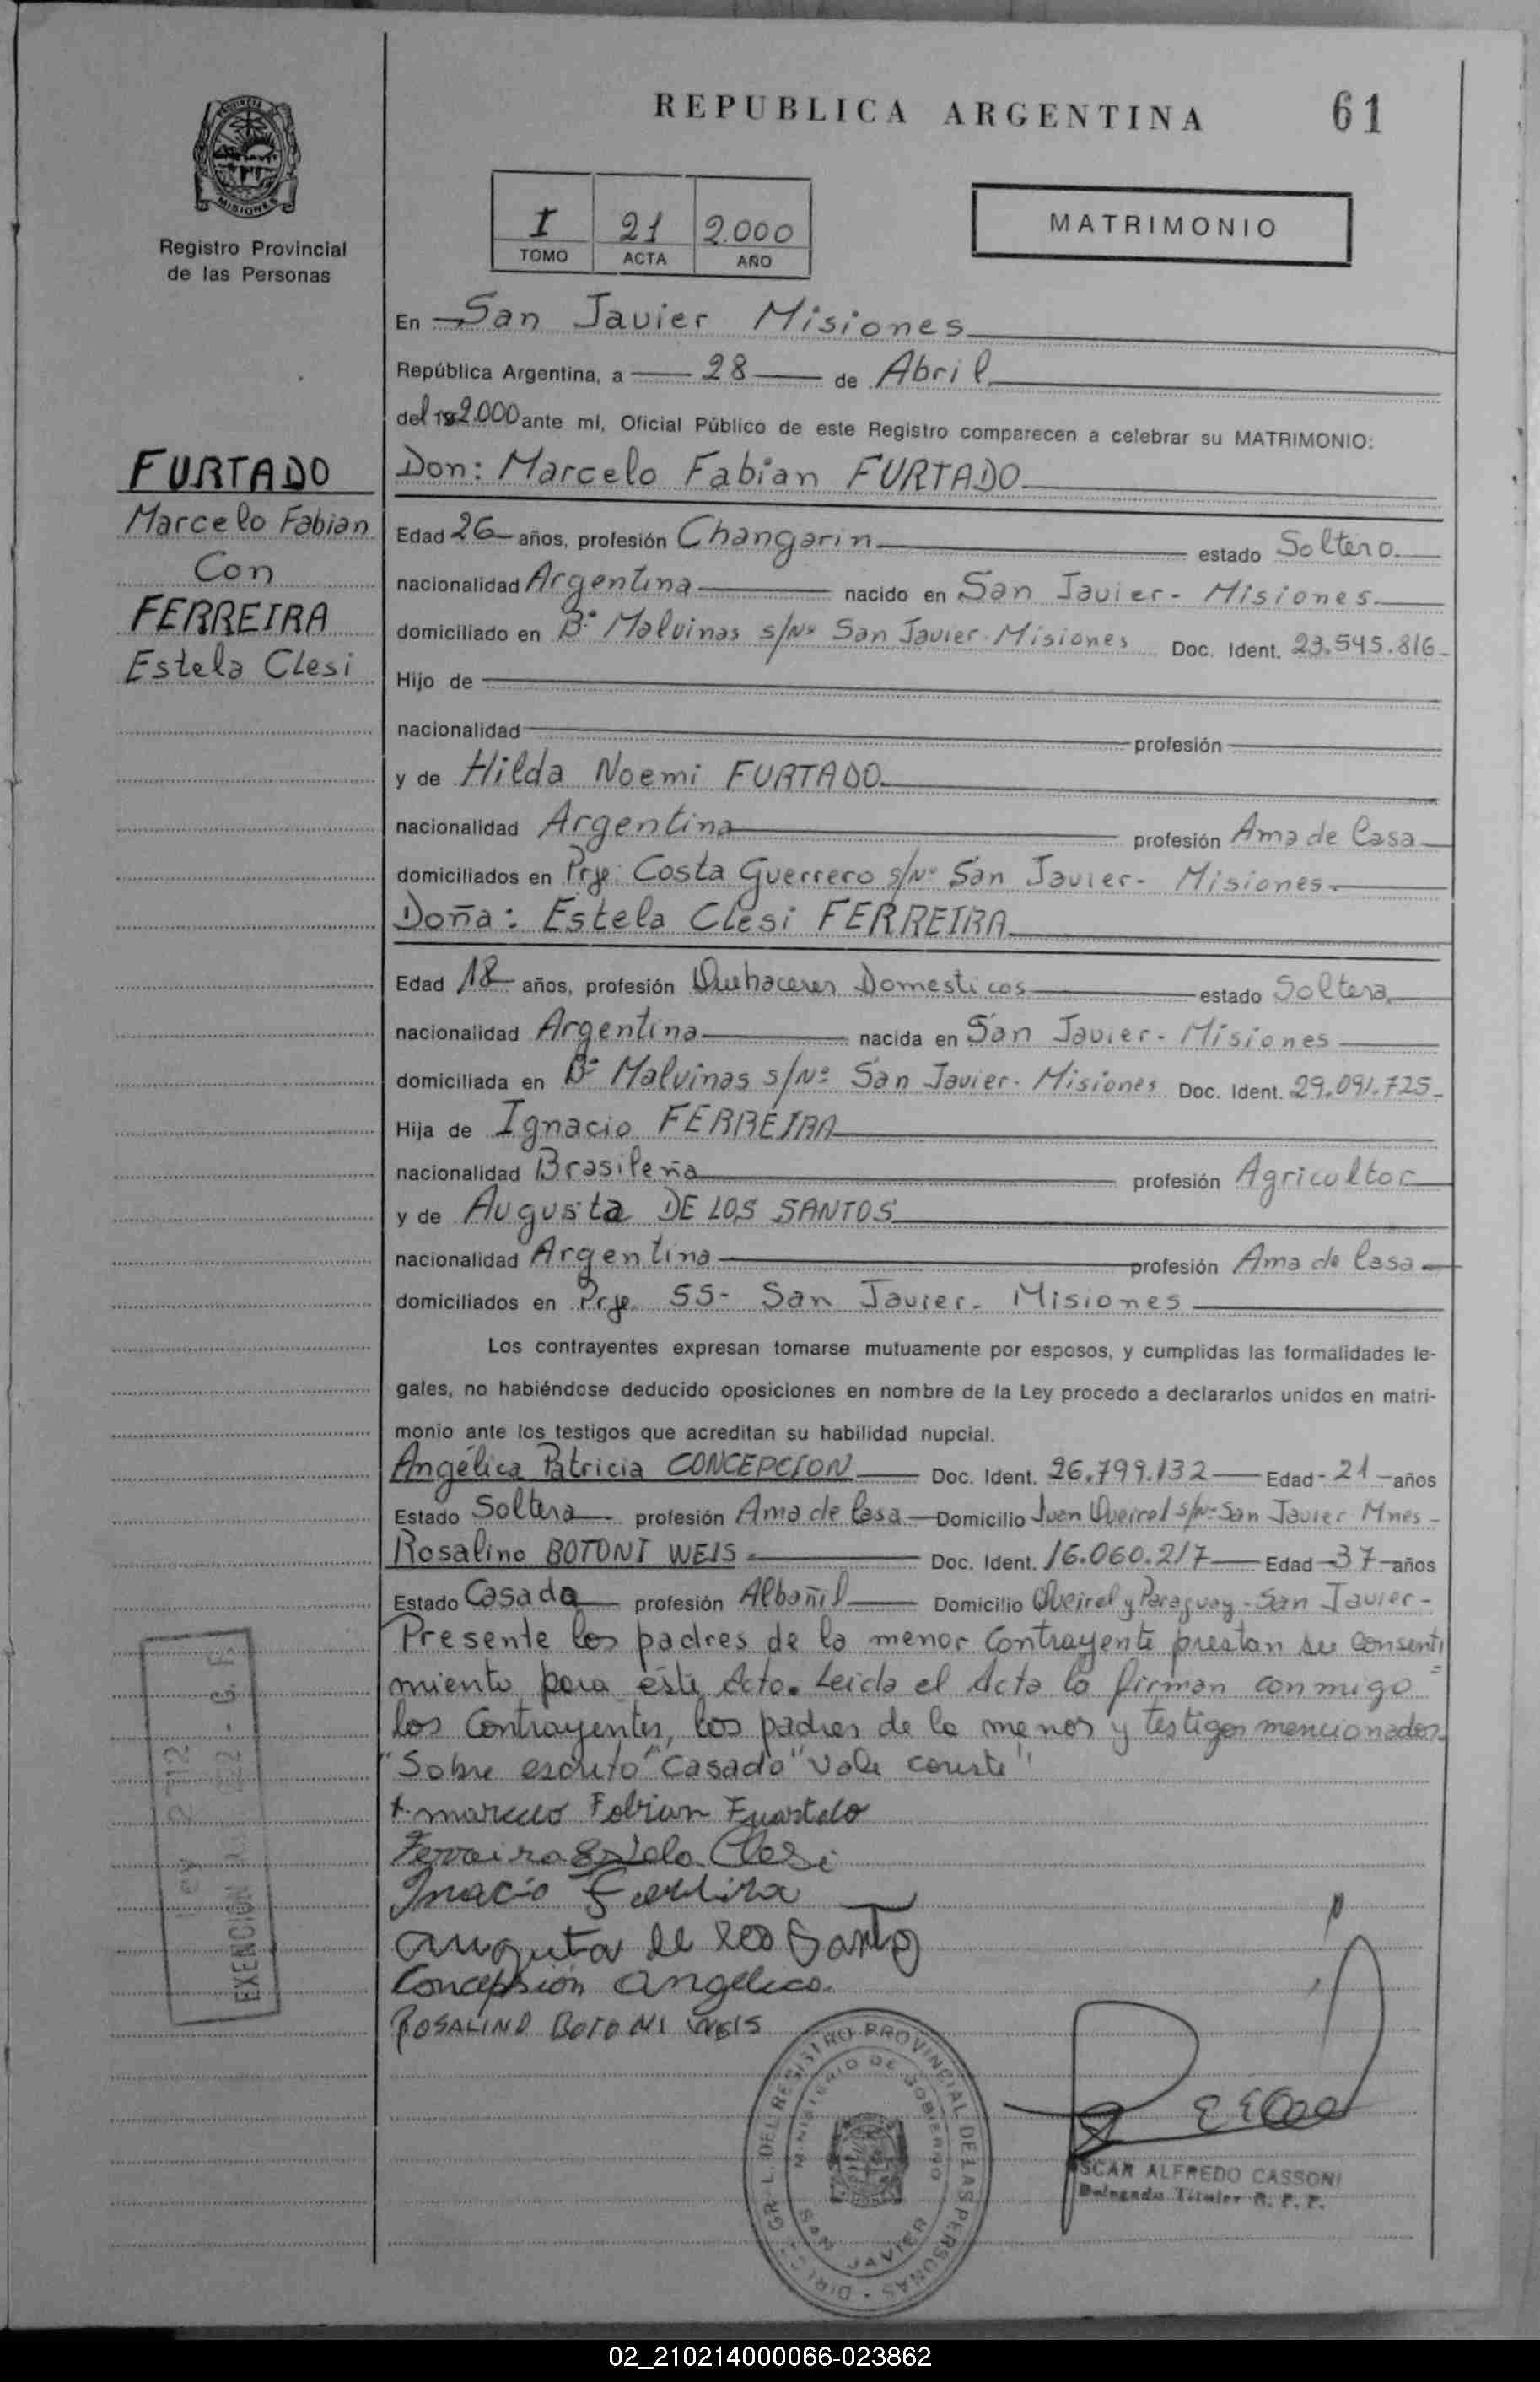 REPUBLICA ARGENTINA
61
PROVINCIA
MISIONES
Registro Provincial
de las Personas
I 21 2.000
TOMO ACTA AÑO
MATRIMONIO
En San Javier Misiones
República Argentina, a 28 de Abril
del 2.000 ante mí, Oficial Público de este Registro comparecen a celebrar su MATRIMONIO:
FURTADO
Marcelo Fabian
Con
FERREIRA
Estela Clesi
Don: Marcelo Fabian FURTADO
Edad 26 años, profesión Changarin estado Soltero
nacionalidad Argentina nacido en San Javier - Misiones
domiciliado en Bº Malvinas s/Nº San Javier - Misiones Doc. Ident. 23.545.816
Hijo de
nacionalidad profesión
y de Hilda Noemi FURTADO
nacionalidad Argentina profesión Ama de Casa
domiciliados en Prje. Costa Guerrero s/Nº San Javier - Misiones
Doña: Estela Clesi FERREIRA
Edad 18 años, profesión Quehaceres Domesticos estado Soltera
nacionalidad Argentina nacida en San Javier - Misiones
domiciliada en Bº Malvinas s/Nº San Javier - Misiones Doc. Ident. 29.091.725
Hija de Ignacio FERREIRA
nacionalidad Brasileña profesión Agricultor
y de Augusta DE LOS SANTOS
nacionalidad Argentina profesión Ama de Casa
domiciliados en Prje. San Javier - Misiones
Los contrayentes expresan tomarse mutuamente por esposos, y cumplidas las formalidades le-
gales, no habiéndose deducido oposiciones en nombre de la Ley procedo a declararlos unidos en matri-
monio ante los testigos que acreditan su habilidad nupcial.
Angélica Patricia CONCEPCION Doc. Ident. 26.799.132 Edad 21 años
Estado Soltera profesión Ama de Casa Domicilio Juan Queirel s/Nº San Javier Mnes
Rosalino BOTONI WEIS Doc. Ident. 16.060.217 Edad 37 años
Estado Casado profesión Albañil Domicilio Queirel y Paraguay - San Javier -
Presente los padres de la menor Contrayente prestan su Consenti
miento para éste Acto. Leida el Acta la firman conmigo
los Contrayentes, los padres de la menor y testigos mencionados.
"Sobre escrito "Casado" vale conste"
Ferreira Estela Clesi
Inacio Ferreira
Concepsión Angelica
ROSALINO BOTONI WEIS
Ley 2712
EXENCION
DIRECC. GRAL. DEL REGISTRO PROVINCIAL DE LAS PERSONAS
MINISTERIO DE GOBIERNO
SAN JAVIER
OSCAR ALFREDO CASSONI
Delegado Titular R. P. P.
02_210214000066-023862